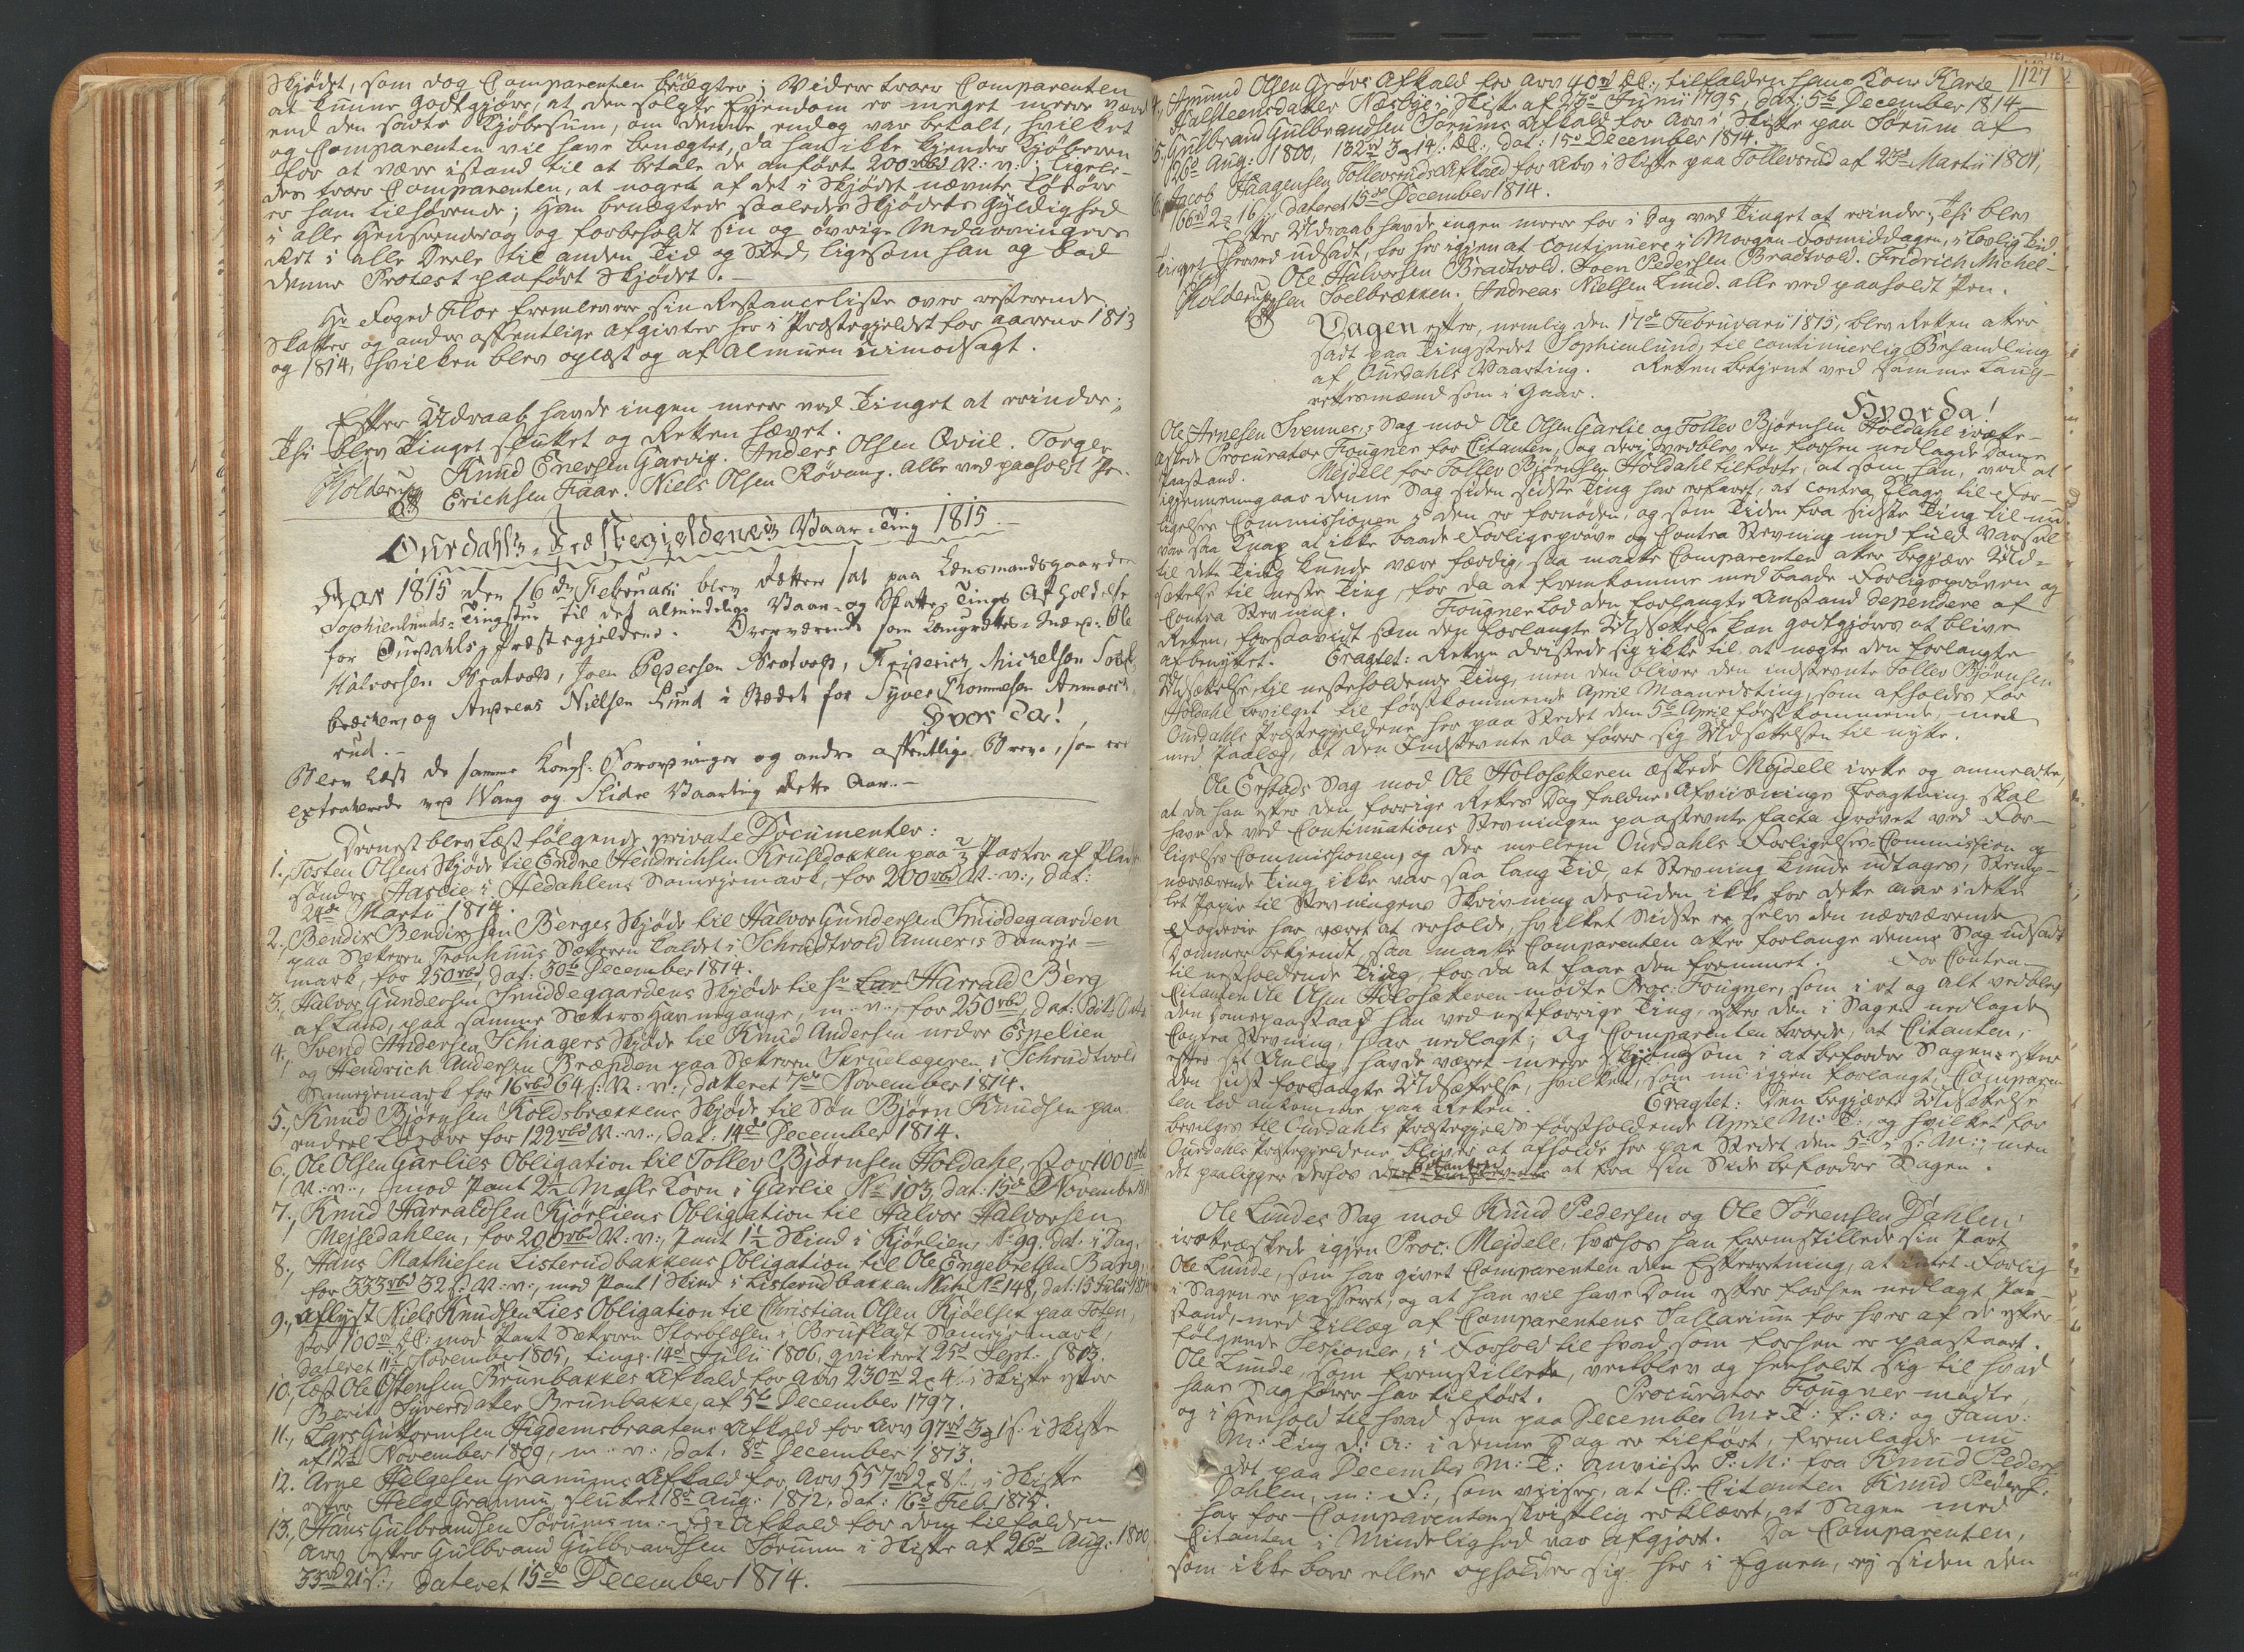 Skjødet, som dog Comparenten benægter; Videre troer Comparenten
at kunne godtgjøre, at den solgte Eyendom er meget meere værd
end den sadte Kjøbesum, om denne endog var betalt, hvilket
og Comparenten vil have benægtet, da han ikke kjender Kjøberen
for at være istand til at betale de anførte 200 rbd N: v: ligele-
des troer Comparenten, at noget af det i Skjødet nævnte Løsøre
er ham tilhørende; Han benægtede saaledes Skjødets Gyldighed
i alle Henseender og forbeholdt sin og øvrige Medarvingers
Ret i alle Deele til anden Tid og Sted, ligesom han og bad
denne Protest paaført Skjødet.
Hr Foged Flor fremleverer sin Restanceliste over resterende
Skatter og andre offentlige Afgivter her i Præstegjeldet for Aarene 1813
og 1814, hvilken blev oplæst og af Almuen uimodsagt.
Efter Udraab havde ingen meere ved Tinget at erindre;
Thi blev Tinget sluttet og Retten hævet.
Holderup Knud Enersen Garvig. Anders Olsen Qviil. Torger
Erichsen Faar. Niels Olsen Røvang. alle ved paaholdt Pen.
Ourdahls Præstegieldenes Vaar-Ting 1815.
Aar 1815 den 16de Februarii blev Retten sat paa Lensmandsgaarden
Sophienlunds Tingstue til det almindelige Vaar- og Skatte-Tings Afholdelse
for Ourdahls Præstegjeldene. Overværende som Laugrettes-Mænd: Ole
Halvorsen Bratvold, Joen Pedersen Bratvold, Friderich Michelsen Joel-
bræcken, og Andreas Nielsen Lund i Stædet for Syver Thommesen Anmarch-
rud. Hvor da!
Blev læst de samme Kongl: Forordninger og andre offentlige Breve, som ere
extraherede ved Wang og Slidre Vaarting dette Aar.
Dernest blev læst følgende private Documenter:
1., Tosten Olsens Skjøde til Endre Hendrichsen Krusedokken paa 2/3 Parter af Plads
søndre Haslie i Hedahlens Sameiemark, for 200 rbd N: v:, dat:
24de Martii 1814.
2., Bendix Bendixsen Berges Skjøde til Halvor Gundersen Smiddegaarden
paa Sæteren Tronhuus Sæteren kaldet i Schrudtvold Annexes Sameje-
mark, for 250 rbd, dat: 30te December 1814.
3., Halvor Gundersen Smiddegaardens Skjøde til Hr Lar Harrald Berg
af Land, paa samme Sæters Havnegange, m: v:, for 250 rbd, dat: dito Dato
4., Svend Andersen Schiagers Skjøde til Knud Andersen nedre Espelien
og Hendrich Andersen Brænden paa Sæteren Skruelægeren i Schrudtvold
Samejemark for 16 rbd 64 s: N: v:, dateret 7de November 1814.
5., Knud Bjørnsen Koldsbrækkens Skjøde til Søn Bjørn Knudsen paa
endeel Løsøre for 122 rbd N: v:, dat: 14de December 1814.
6., Ole Olsen Garlies Obligation til Tollev Bjørnsen Holdahl, stor 1000 rbd
N: v:, mod Pant 2 1/2 Mæhle Korn i Garlie No 103, dat: 15de November 1814
7., Knud Harraldsen Kjørliens Obligation til Halvor Halvorsen
Mejsedahlen, for 200 rbd N: v:, Pant 1 1/2 Skind i Kjørlien, No 99, dat: i Dag.
8., Hans Mathiesen Listerudbakkens Obligation til Ole Engebretsen Bang,
for 333 rbd 32 s: N: v:, med Pant 1 Skind i Listerudbakken Matr: No 148, dat: 15 Febr: 1815
9., Aflyst Niels Knudsen Lies Obligation til Christian Olsen Kjøelset paa Toten,
for 100 rd: mod Pant Sæteren Storblæsen i Bruflat Samejemark
dateret 11te November 1805, tingl: 14de Julii 1806, qvitteret 25de Sept: 1813.
10., læst Ole Østensen Brunbakkes Afkald for Arv 230 rd 2 ort 4 s: i Skifte efter
Berit Syversdatter Brunbakke, af 5te December 1797.
11., Lars Guttormsen Høgdemsbraatens Afkald for Arv 97 rd 3 ort 1 s: i Skifte
af 12te November 1809, m: v:, dat: 8de December 1813.
12. Arne Helgesen Granums Afkald for Arv 557 rd 2 ort 8 s: i Skifte
efter Helge Granum, sluttet 18de Aug: 1812, dat: 16de Feb: 1815.
13., Hans Gulbrandsen Sørums m: fl: Afkald for dem tilfalden
Arv efter Gulbrand Gulbrandsen Sørum i Skifte af 26de Aug: 1800
33 rd 21 s:, dateret 15de December 1814.
127
4., Amund Olsen Grøvs Afkald for Arv 40 rd: tilfalden hans Kone Karie
Halsteensdatter Næsbye, i Skifte af 23de Junii 1795, dat: 5te December 1814
5., Gulbrand Gulbrandsen Sørums Afkald for Arv i Skifte paa Sørum af
26de Aug: 1800, 132 rd 3 ort 14 s:, dat: 15de December 1814.
6., Jacob Haagensen Tollevsruds Afkald for Arv i Skifte paa Tollevsrud af 23de Martii 1801,
166 rd 2 ort 16 s: dateret 15de December 1814.
Efter Udraab havde ingen meere for i Dag ved Tinget at erindre; Thi blev
Tinget herved udsadt, for her igjen at continuere i Morgen Formiddagen, i lovlig Tid
Holderup Ole Halvorsen Bradtvold. Joen Pedersen Bradtvold. Fridrich Michel-
sen Joelbrækken. Andreas Nielsen Lund. alle ved paaholdt Pen.
Dagen efter, nemlig den 17de Februarii 1815, blev Retten atter
sadt paa Tingstedet Sophienlund, til continuerlig Behandling
af Ourdahls Vaarting. Retten betjent ved samme Laug-
rettesmænd som i Gaar.
Hvor da!
Ole Arnesen Svennes's Sag mod Ole Olsen Garlie og Tollev Bjørnsen Holdahl irette-
æskede Procurator Fougner for Citanten, og deri vedblev den forhen nedlagde Doms
Paastand. Mejdell for Tollev Bjørnsen Holdahl tilførte, at som han, ved at
igjennemgaae denne Sag siden sidste Ting har erfaret, at contra Klage til For-
ligelses Commissionen i den er fornøden, og som Tiden fra sidste Ting til nu
var saa knap at ikke baade Forligsprøve og Contra Stevning med fuld Varsel
til dette Ting kunde være færdig, saa maatte Comparenten atter begjære Ud-
settelse til neste Ting, for da at fremkomme med baade Forligsprøven og
Contra Stevning. Fougner lod den forlangte Anstand dependere af
Retten, forsaavidt som den forlangte Udsættelse kan godtgjøres at blive
afbenyttet. Eragtet: Retten dristede sig ikke til at nægte den forlangte
Udsættelse til nestholdende Ting, men den bliver den indstevnte Tollev Bjørnsen
Holdahl bevilget til førstkommende April Maanedsting, som afholdes for
Ourdahls Præstegjeldene her paa Stedet den 5te April førstkommende, med
med Paalæg, at den Indstevnte da fører sig Udsettelsen til nytte.
Ole Erstads Sag mod Ole Holosætteren æskede Mejdell irette og anmeldte,
at da han efter den forrige Rettes Dag faldne Afviisnings Eragtning skal
have de ved Continuations Stevningen paastevnte facta prøvet ved For-
ligelses Commissionen, og der mellem Ourdahls Forligelses-Commission og
nærværende Ting ikke var saa lang Tid, at Stevning kunde udtages, Stemp-
let Papir til Stevningens Skrivning desuden ikke før dette Aar i dette
Fogderie har været at erholde, hvilket Sidste er selv den nærværende
Dommer bekjendt, saa maatte Comparenten atter forlange denne Sag udsadt
til nestholdende Ting, for da at faae den fremmet. For Contra-
Citanten Ole Olsen Holosætteren mødte Proc: Fougner, som i et og alt vedblev
den Domspaastand han ved nestforrige Ting, efter den i Sagen nedlagde
Contra Stevning, har nedlagt; og Comparenten troede, at Citanten,
efter sit Anlæg, havde været meere skjønsom i at befordre Sagen efter
den sidst forlangte Udsættelse, hvilken, som nu igjen forlangt, Comparen-
ten lod ankomme paa Retten. Eragtet: Den begjærte Udsættelse
bevilges til Ourdahls Præstegjelds førstholdende April M: T:, og hvilket for
Ourdahls Præstegjeldene bliver at afholde her paa Stedet den 5te s: M:, men
det paaligger derhos Citanten at fra sin Side befordre Sagen.
Ole Lundes Sag mod Knud Pedersen og Ole Sørensen Dahlen
iretteæskede igjen Proc: Mejdell, hvorhos han fremstillede sin Part
Ole Lunde, som har givet Comparenten den Efterretning, at intet Forlig
i Sagen er passeret, og at han vil have Dom efter forhen nedlagt Paa-
stand, med Tillæg af Comparentens Sallarium for hver af de efter-
følgende Sessioner, i Forhold til hvad som forhen er paastaaet.
Ole Lunde, som fremstillede, vedblev og henholdt sig til hvad
hans Sagfører har tilført. Procurator Fougner mødte,
og i Henhold til hvad som paa December M: T: f: A: og Janv:
M: Ting d: A: i denne Sag er tilført, fremlagde nu
det paa December M: T: anviiste P: M: fra Knud Peders:
Dahlen, m: F:, som viiser, at C: Citanten Knud Peders:
har for Comparenten skriftlig erklæret, at Sagen med
Citanten i Mindelighed var afgjort. Da Comparenten,
som ikke boer eller opholder sig her i Egnen, ej siden den